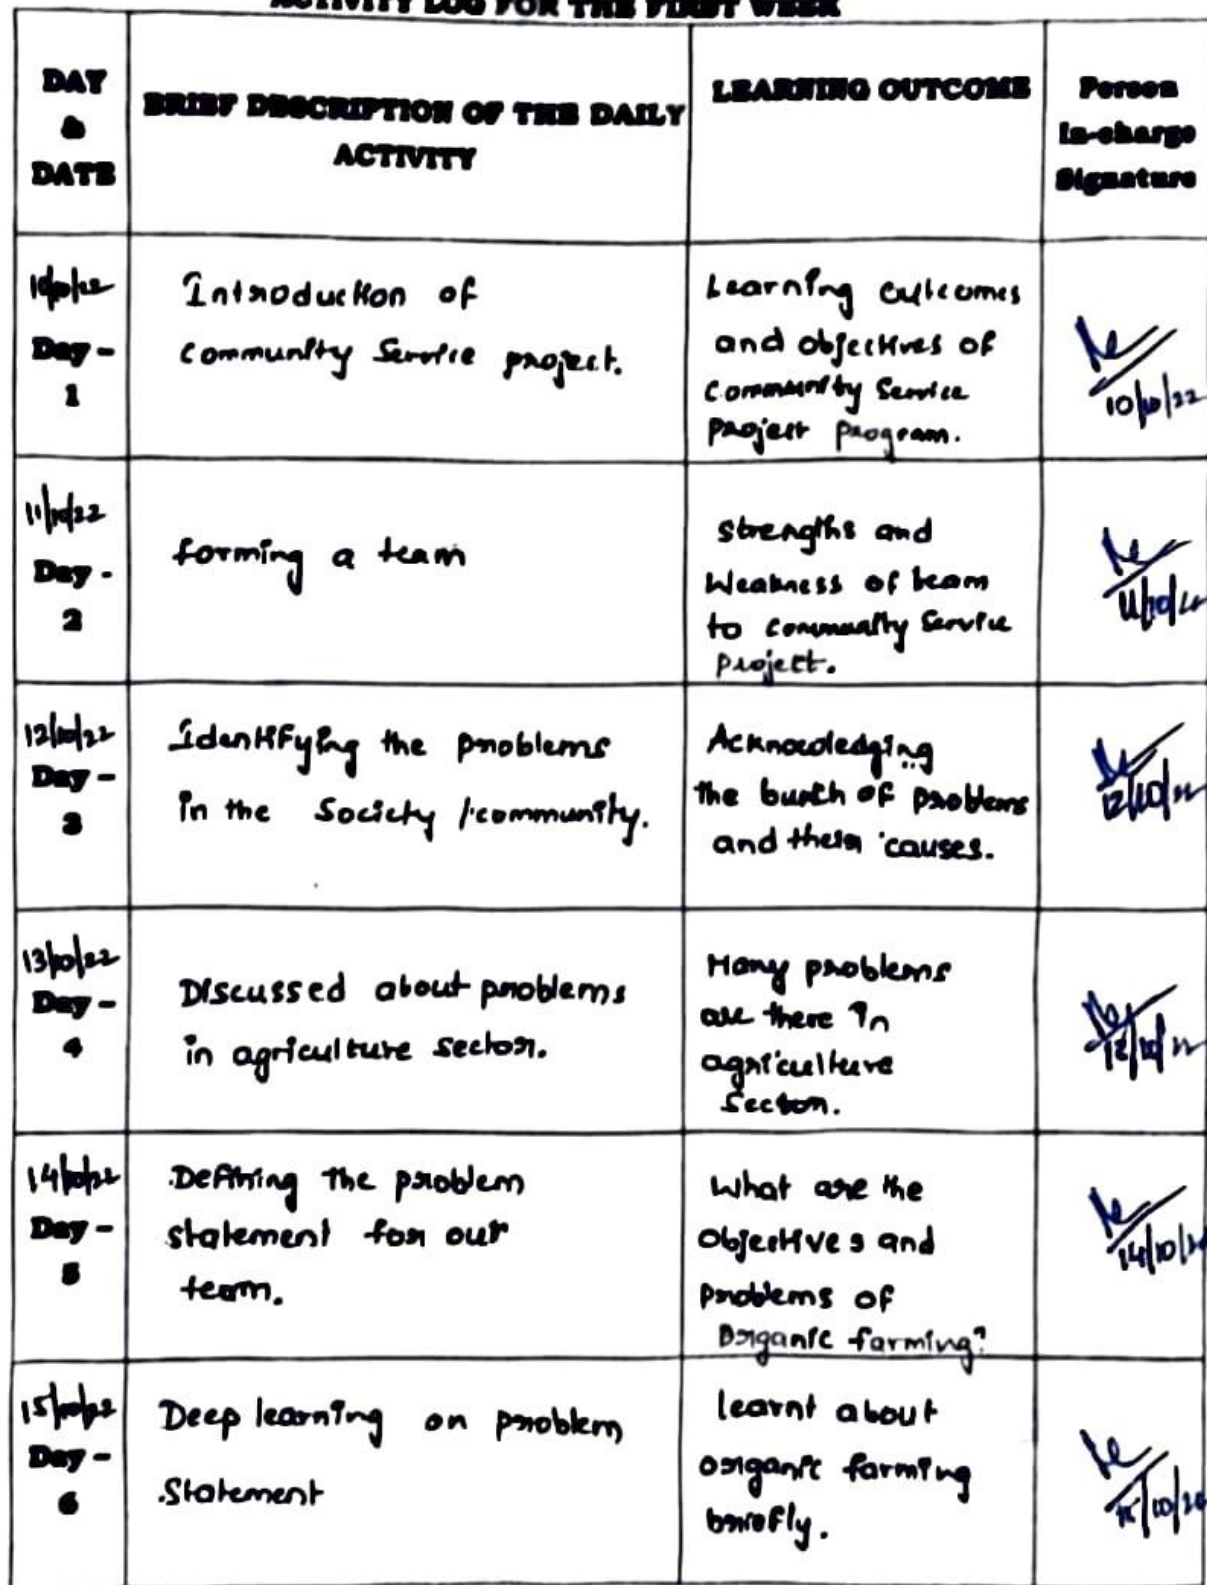 ACTIVITY LOG FOR THE FIRST WEEK
DAY
&
DATE
BRIEF DESCRIPTION OF THE DAILY
ACTIVITY
LEARNING OUTCOME
Person
In-charge
Signature
10/10/22
Day -
1
Introduction of
community Service project.
Learning outcomes
and objectives of
Community Service
project program.
10/10/22
11/10/22
Day -
2
forming a team
strengths and
Weakness of team
to community Service
project.
11/10/22
12/10/22
Day -
3
Identifying the problems
in the Society /community.
Acknowledging
the bunch of problems
and their causes.
12/10/22
13/10/22
Day -
4
Discussed about problems
in agriculture sector.
Many problems
are there in
agriculture
Sector.
14/10/22
Day -
5
Defining the problem
statement for our
team.
What are the
objectives and
problems of
Organic farming?
14/10/
15/10/22
Day -
6
Deep learning on problem
Statement
learnt about
organic farming
briefly.
15/10/